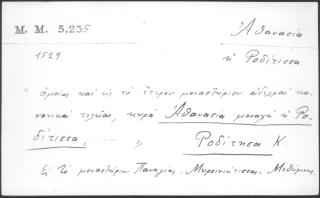 M. M. 5,235
Ἀθανασία
1529
ἡ Ροδίτισσα
ὁμοίως καὶ εἰς τὸ ἕτερον μοναστήριον ἀδελφαὶ κα-
νονικαὶ τέλειαι, κυρά Ἀθανασία μοναχὴ ἡ Ρο-
δίτισσα, ...... , Ροδίτησα Κ.
Εἰς τὸ μοναστήριον Παναγίας - Μυρσινιώτισσας - Μεθύμνης.